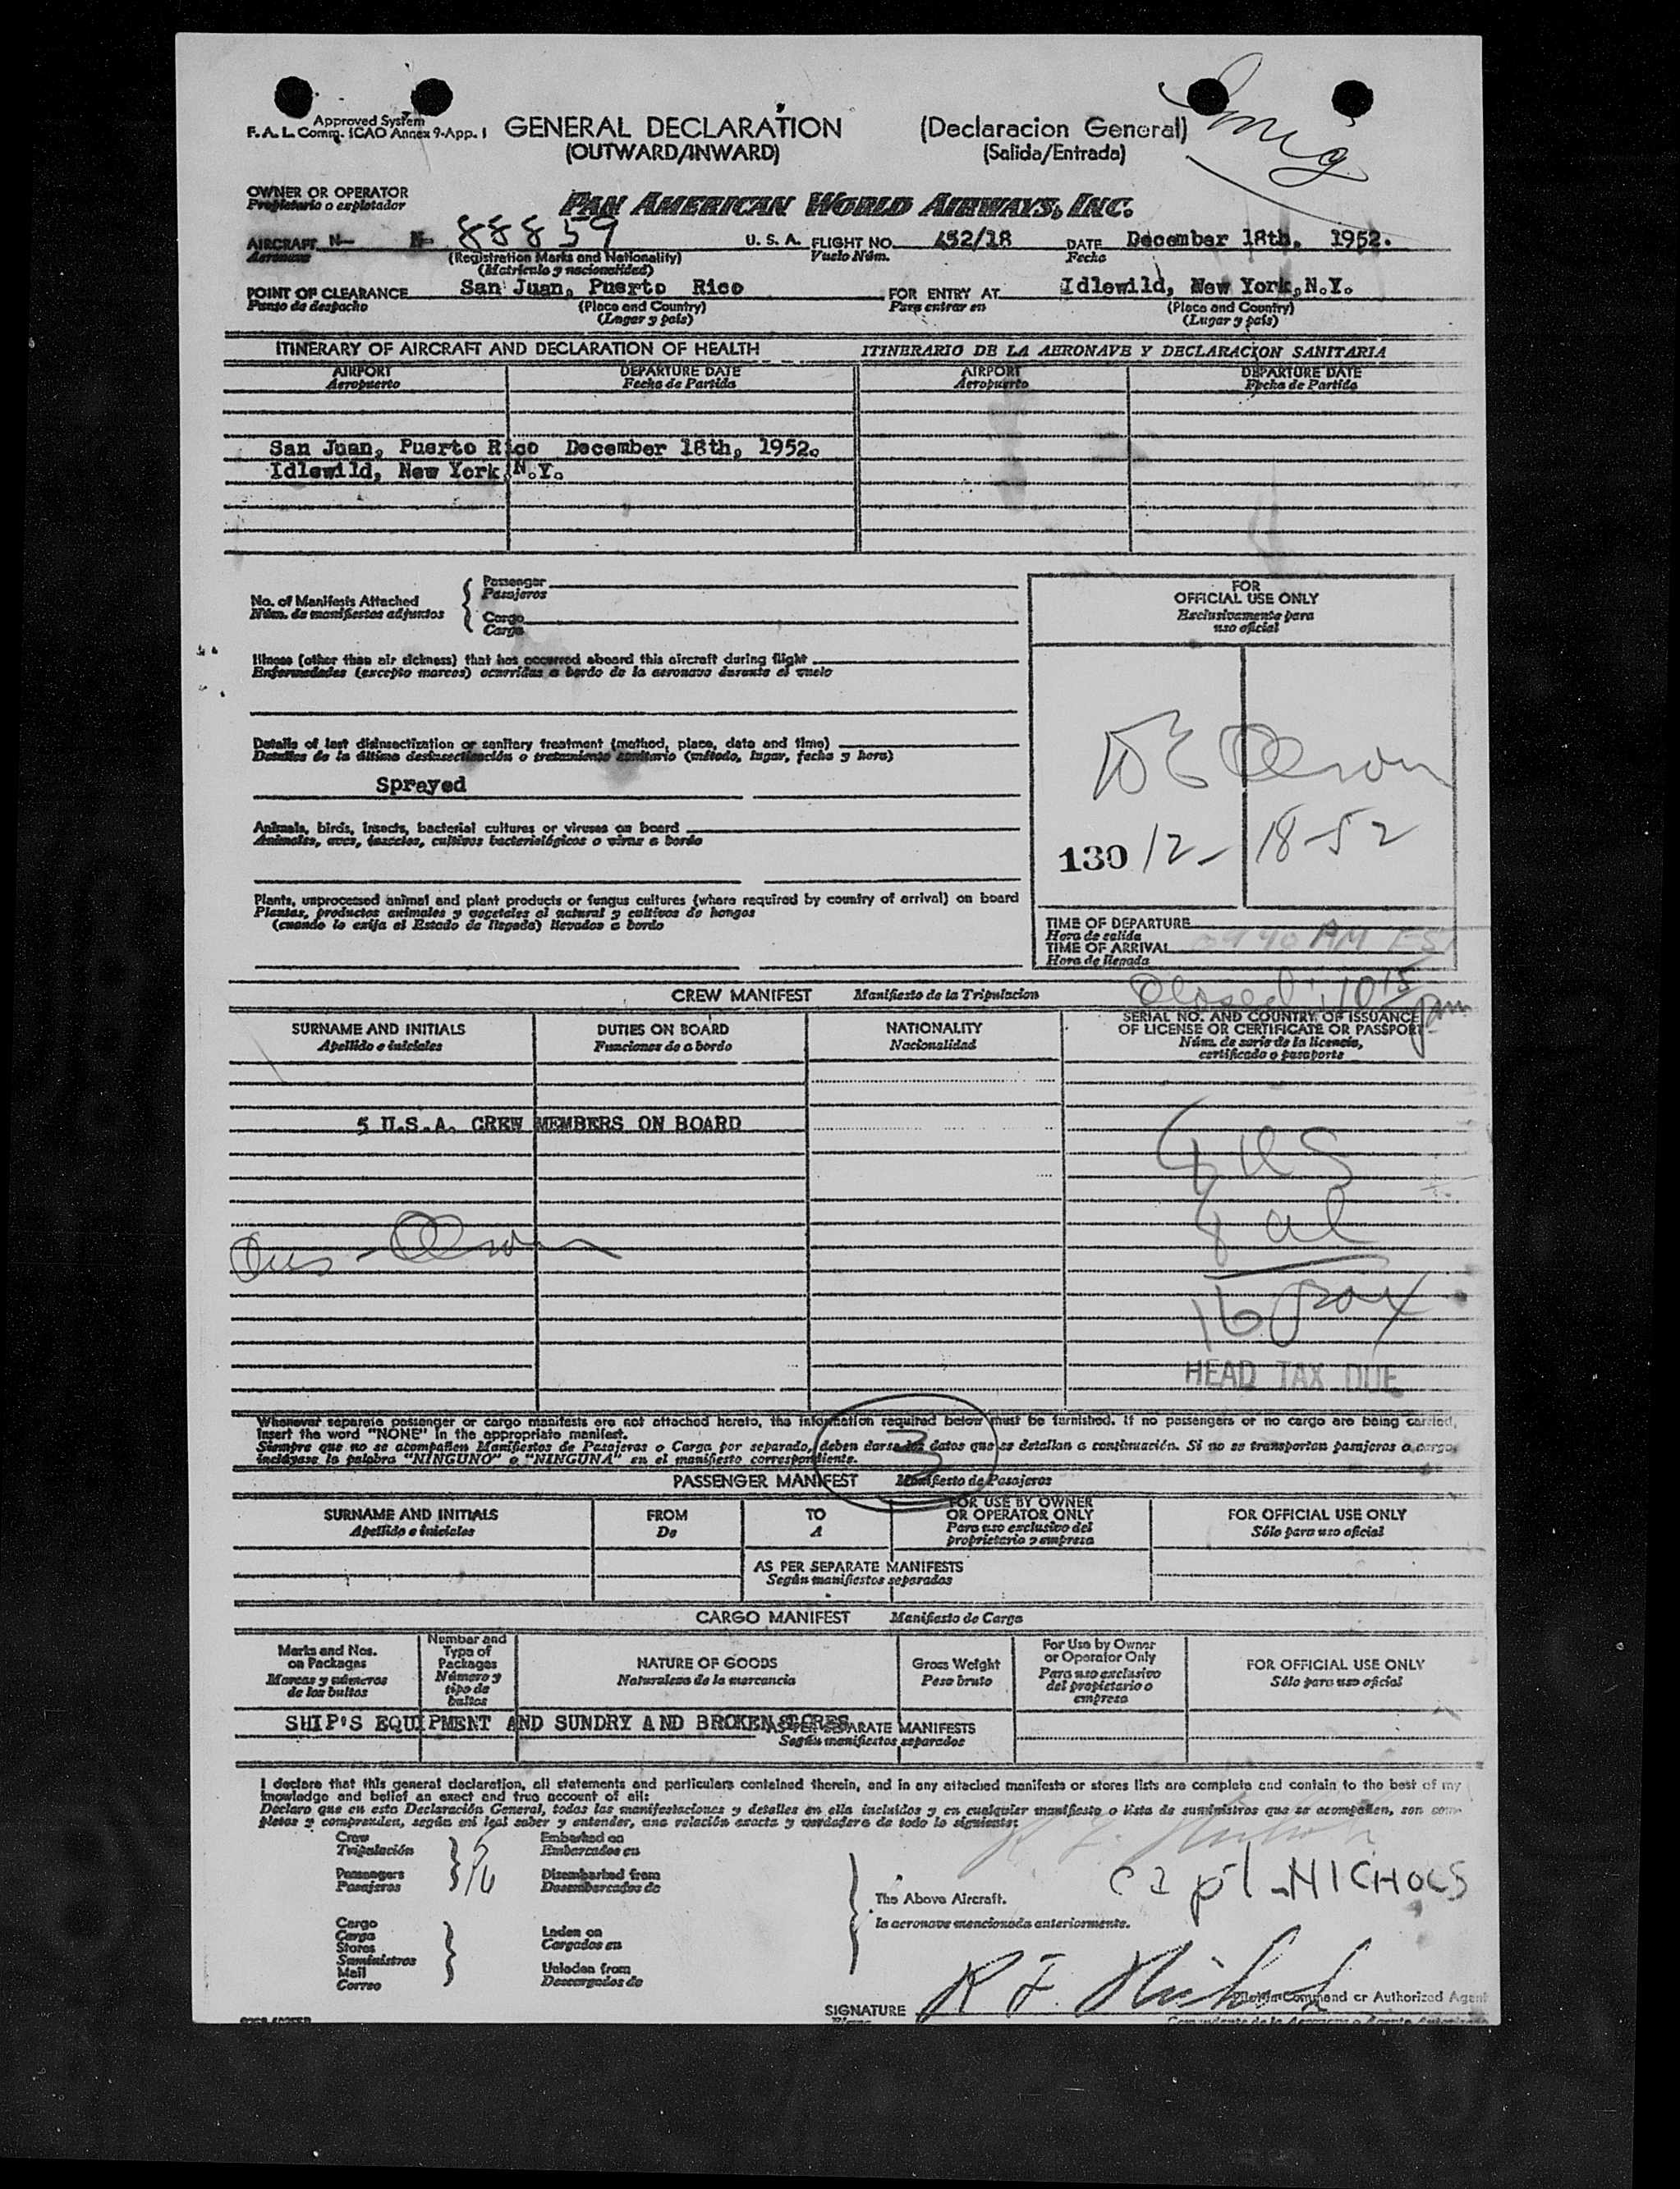 Approved System
F. A. L. Comm. ICAO Annex 9-App. I
GENERAL DECLARATION (Declaracion General)
(OUTWARD/INWARD) (Salida/Entrada)
OWNER OR OPERATOR
Propietario o explotador
PAN AMERICAN WORLD AIRWAYS, INC.
AIRCRAFT N- N- 88859 U. S. A. FLIGHT NO. 452/18 DATE December 18th, 1952.
Aeronave (Registration Marks and Nationality) Vuelo Núm. Fecha
(Matrícula y nacionalidad)
POINT OF CLEARANCE San Juan, Puerto Rico FOR ENTRY AT Idlewild, New York, N.Y.
Punto de despacho (Place and Country) Para entrar en (Place and Country)
(Lugar y país) (Lugar y país)
ITINERARY OF AIRCRAFT AND DECLARATION OF HEALTH ITINERARIO DE LA AERONAVE Y DECLARACION SANITARIA
AIRPORT DEPARTURE DATE AIRPORT DEPARTURE DATE
Aeropuerto Fecha de Partida Aeropuerto Fecha de Partida
San Juan, Puerto Rico December 18th, 1952.
Idlewild, New York, N.Y.
No. of Manifests Attached
Núm. de manifiestos adjuntos
Passenger
Pasajeros
Cargo
Carga
FOR
OFFICIAL USE ONLY
Exclusivamente para
uso oficial
Illness (other than air sickness) that has occurred aboard this aircraft during flight
Enfermedades (excepto mareos) ocurridas a bordo de la aeronave durante el vuelo
Details of last disinsectization or sanitary treatment (method, place, date and time)
Detalles de la última desinsectización o tratamiento sanitario (método, lugar, fecha y hora)
Sprayed
Animals, birds, insects, bacterial cultures or viruses on board
Animales, aves, insectos, cultivos bacteriológicos o virus a bordo
130 12-18-52
Plants, unprocessed animal and plant products or fungus cultures (where required by country of arrival) on board
Plantas, productos animales y vegetales al natural y cultivos de hongos
(cuando lo exija el Estado de llegada) llevados a bordo
TIME OF DEPARTURE
Hora de salida
TIME OF ARRIVAL AM EST
Hora de llegada
Closed 10 15
CREW MANIFEST Manifiesto de la Tripulacion
SURNAME AND INITIALS DUTIES ON BOARD NATIONALITY SERIAL NO. AND COUNTRY OF ISSUANCE
OF LICENSE OR CERTIFICATE OR PASSPORT
Apellido e iniciales Funciones de a bordo Nacionalidad Núm. de serie de la licencia,
certificado o pasaporte
5 U.S.A. CREW MEMBERS ON BOARD
8 US
8 al
16 pax
HEAD TAX DUE
Whenever separate passenger or cargo manifests are not attached hereto, the information required below must be furnished. If no passengers or no cargo are being carried,
insert the word "NONE" in the appropriate manifest.
Siempre que no se acompañen Manifiestos de Pasajeros o Carga por separado, deben darse los datos que se detallan a continuación. Si no se transportan pasajeros o carga,
inclúyase la palabra "NINGUNO" o "NINGUNA" en el manifiesto correspondiente.
3
PASSENGER MANIFEST Manifiesto de Pasajeros
SURNAME AND INITIALS FROM TO FOR USE BY OWNER
OR OPERATOR ONLY FOR OFFICIAL USE ONLY
Apellido e iniciales De A Para uso exclusivo del
propietario o empresa Sólo para uso oficial
AS PER SEPARATE MANIFESTS
Según manifiestos separados
CARGO MANIFEST Manifiesto de Carga
Marks and Nos.
on Packages
Marcas y números
de los bultos
Number and
Type of
Packages
Número y
tipo de
bultos
NATURE OF GOODS
Naturaleza de la mercancia
Gross Weight
Peso bruto
For Use by Owner
or Operator Only
Para uso exclusivo
del propietario o
empresa
FOR OFFICIAL USE ONLY
Sólo para uso oficial
SHIP'S EQUIPMENT AND SUNDRY AND BROKEN STORES
AS PER SEPARATE MANIFESTS
Según manifiestos separados
I declare that this general declaration, all statements and particulars contained therein, and in any attached manifests or stores lists are complete and contain to the best of my
knowledge and belief an exact and true account of all:
Declaro que en esta Declaración General, todas las manifestaciones y detalles en ella incluídos y en cualquier manifiesto o lista de suministros que se acompañen, son completos
y comprenden, según mi leal saber y entender, una relación exacta y verdadera de todo lo siguiente:
Crew
Tripulación
Passengers
Pasajeros
Embarked on
Embarcados en
Disembarked from
Desembarcados de
Cargo
Carga
Stores
Suministros
Mail
Correo
Laden on
Cargados en
Unladen from
Descargados de
The Above Aircraft.
La aeronave mencionada anteriormente.
Capt. NICHOLS
SIGNATURE R F. Nichols
Pilot in Command or Authorized Agent